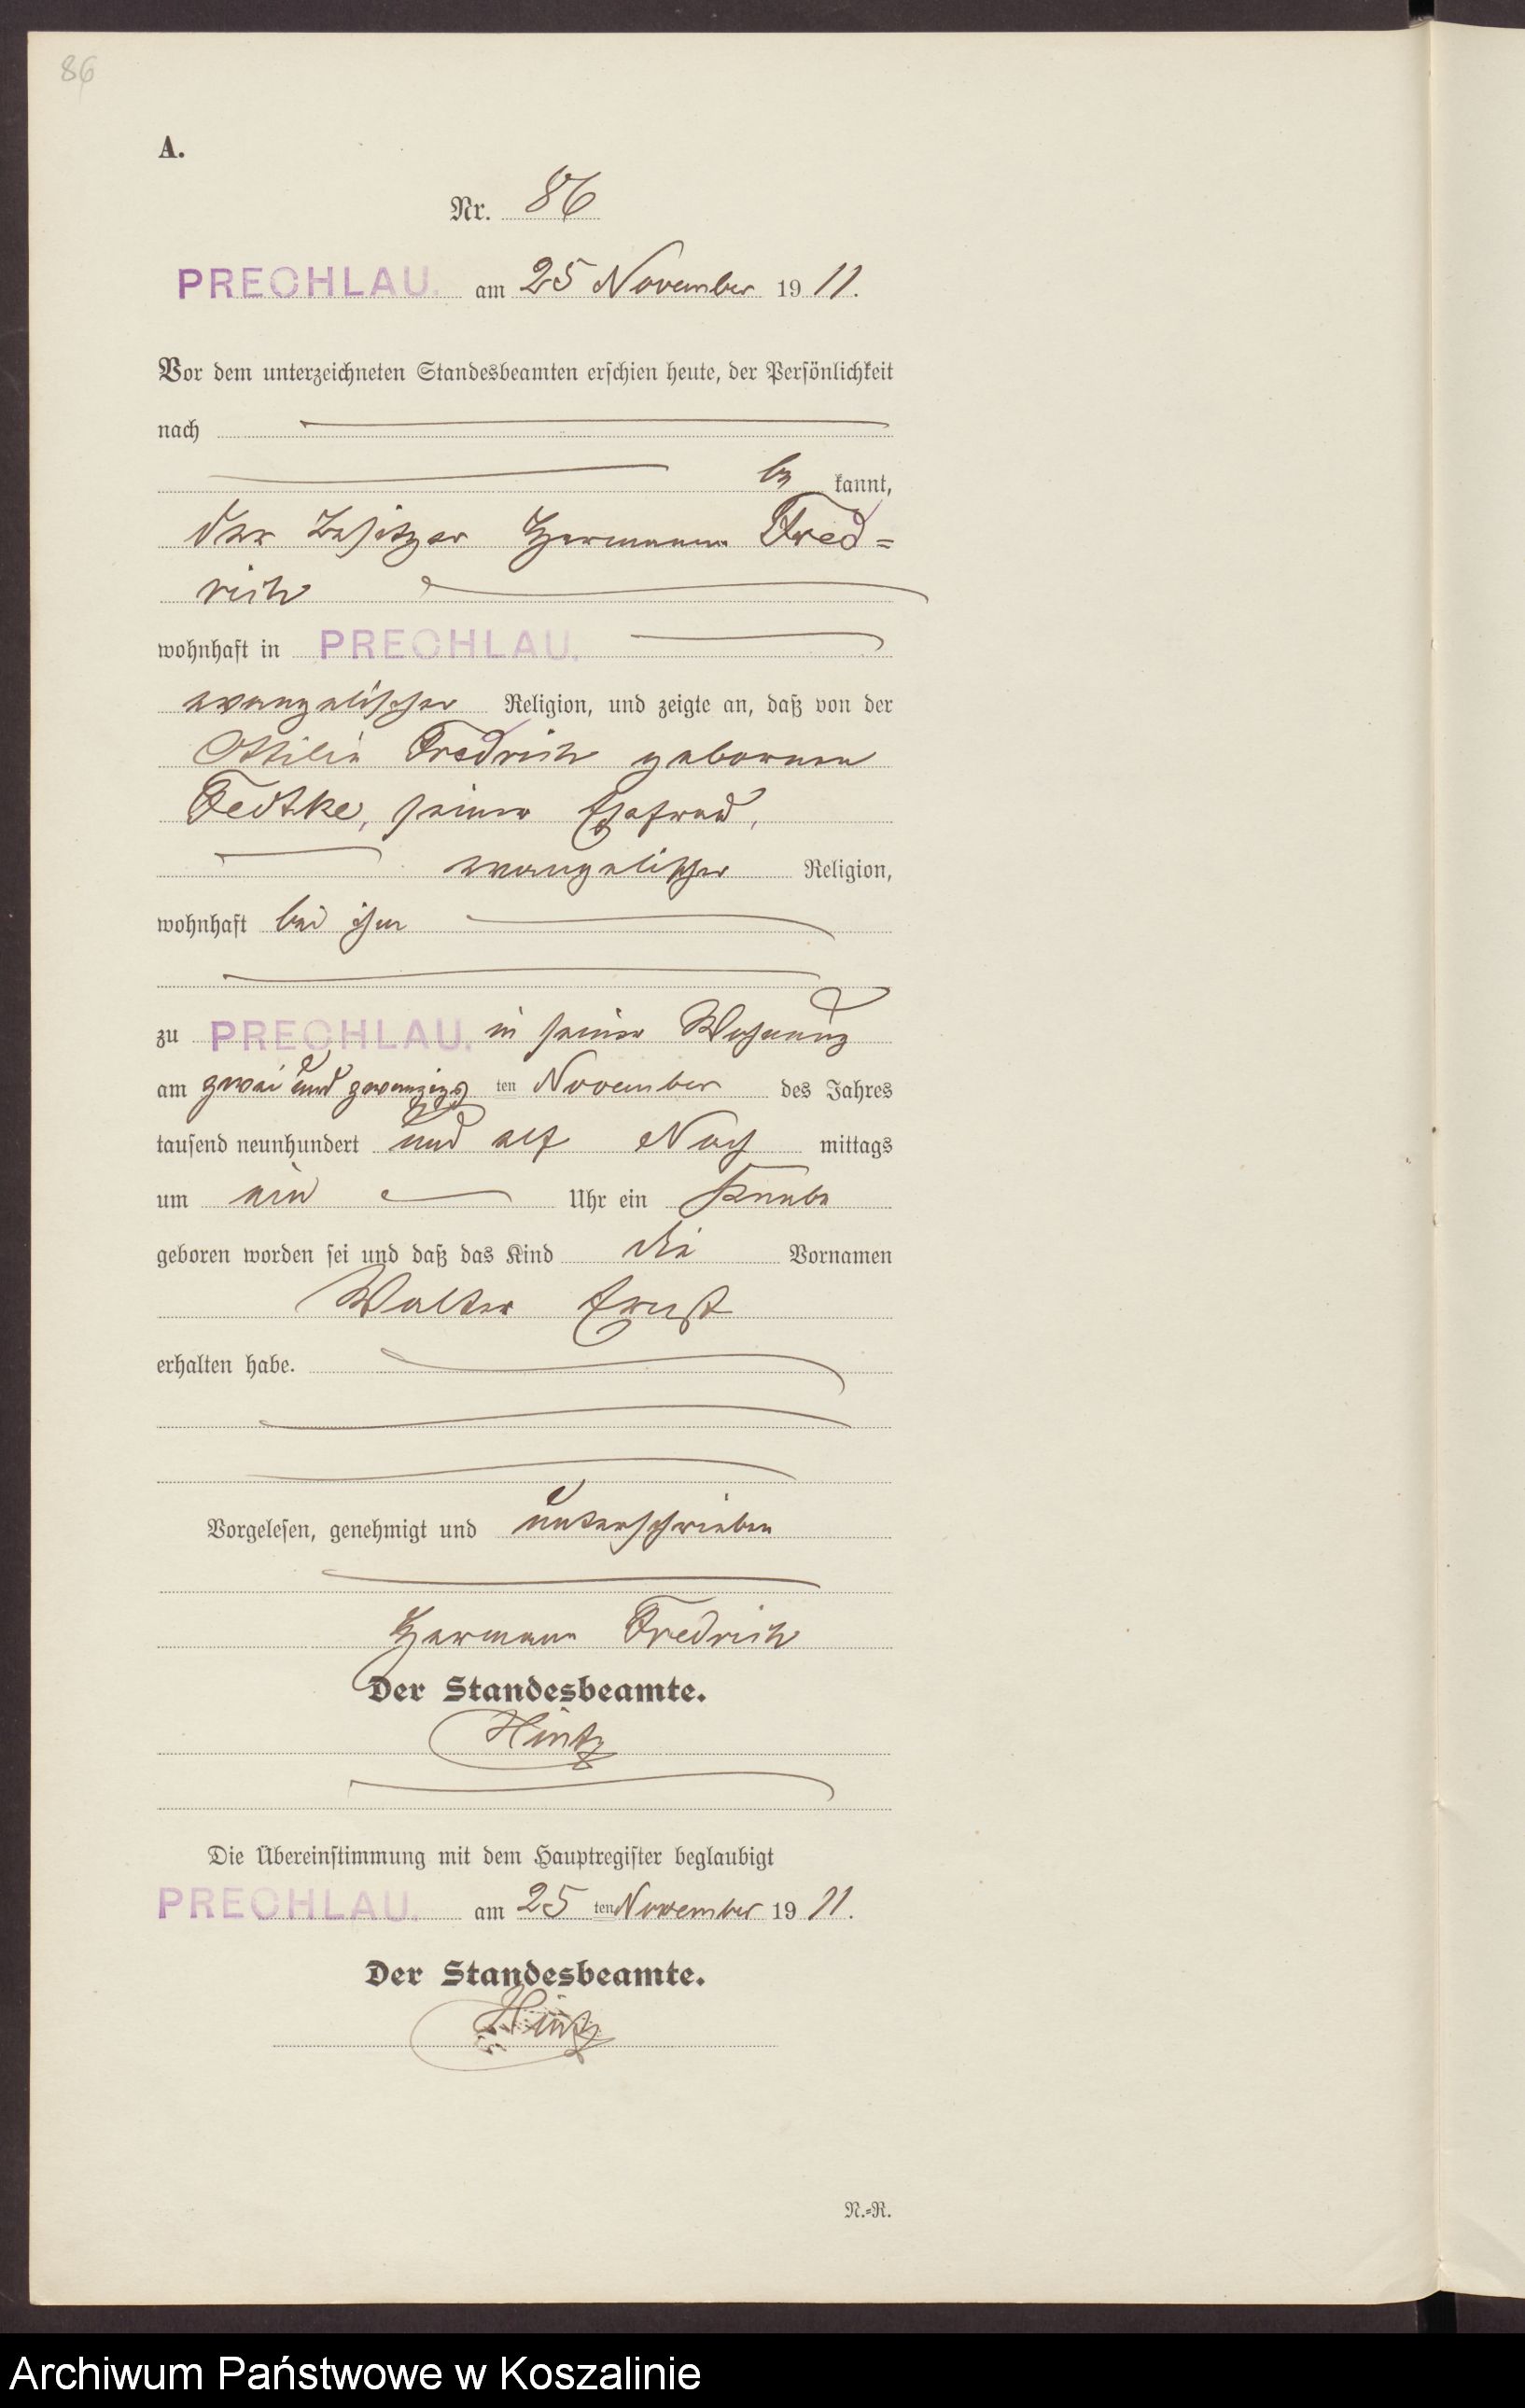 86
A.
Nr. 86
PRECHLAU. am 25 November 1911.
Vor dem unterzeichneten Standesbeamten erschien heute, der Persönlichkeit
nach
be kannt,
der Besitzer Hermann Fred=
rich
wohnhaft in PRECHLAU.
evangelischer Religion, und zeigte an, daß von der
Ottilie Fredrich geborenen
Fedtke, seiner Ehefrau,
evangelischer Religion,
wohnhaft bei ihm
zu PRECHLAU. in seiner Wohnung
am zwei und zwanzigs ten November des Jahres
tausend neunhundert und elf Nach mittags
um ein Uhr ein Knabe
geboren worden sei und daß das Kind die Vornamen
Walter Ernst
erhalten habe.
Vorgelesen, genehmigt und unterschrieben
Hermann Fredrich
Der Standesbeamte.
Hintz
Die Übereinstimmung mit dem Hauptregister beglaubigt
PRECHLAU. am 25 ten November 1911.
Der Standesbeamte.
Hintz
N.=R.
Archiwum Państwowe w Koszalinie